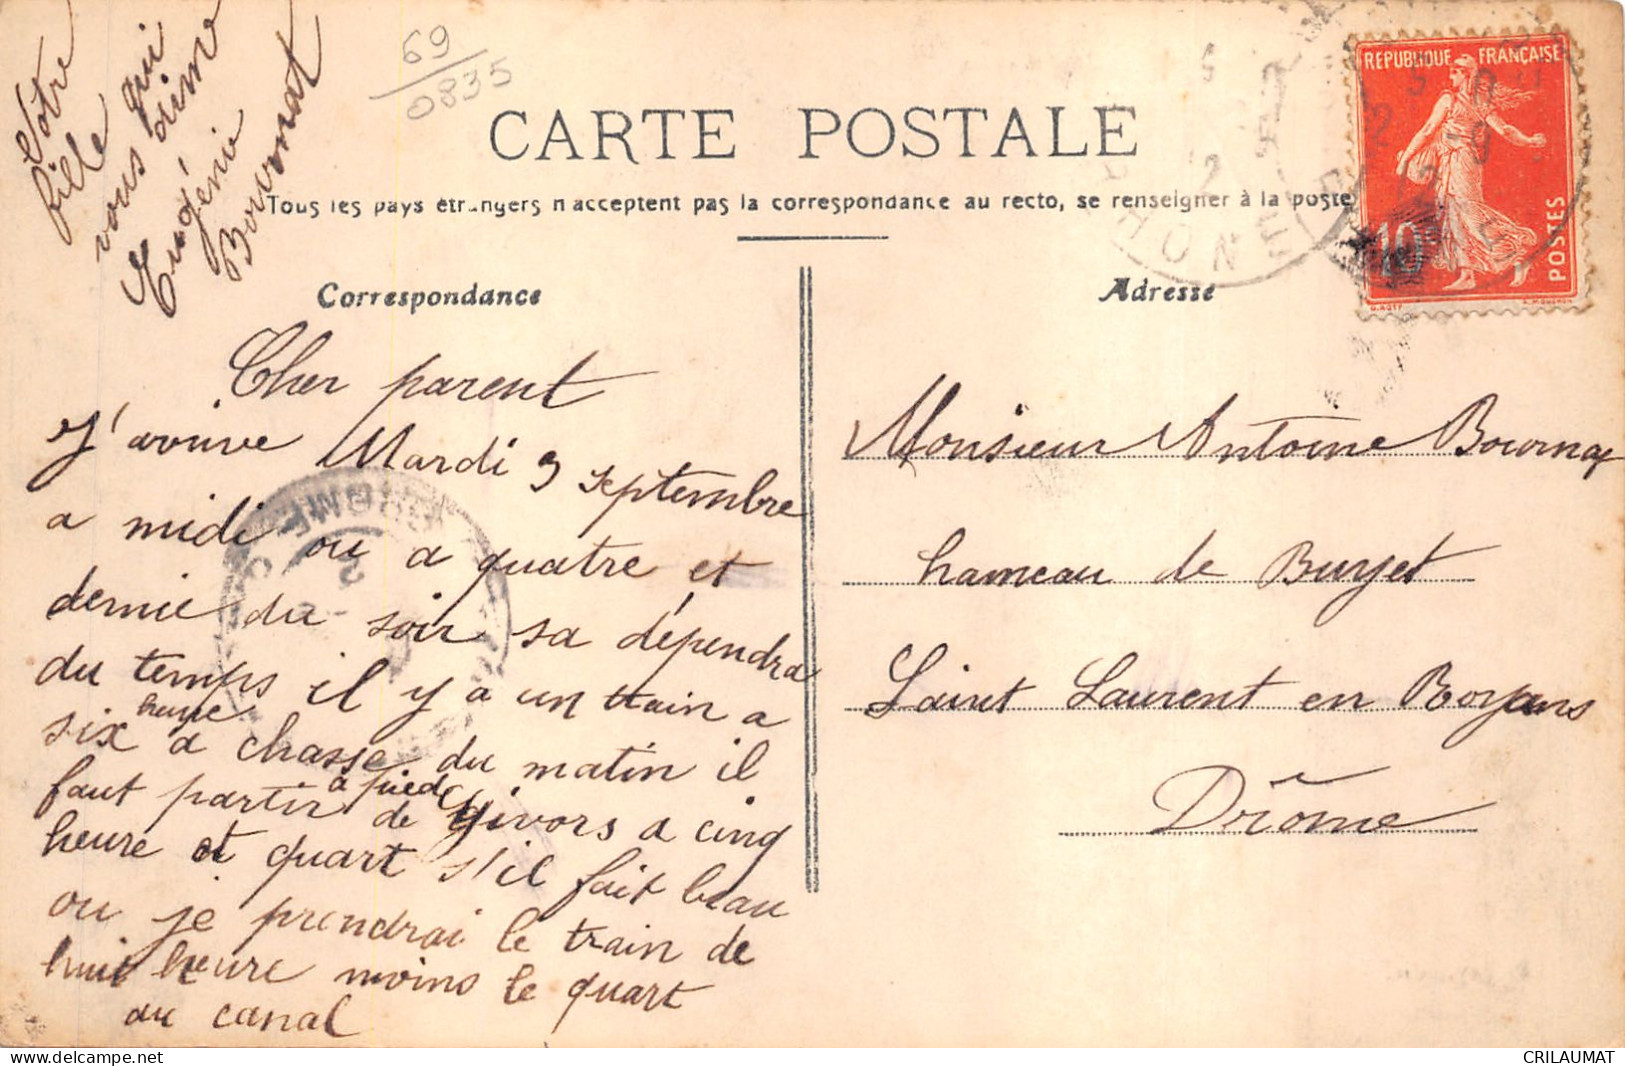 Votre
fille
qui
vous aime
Eugénie
Bournat
69
0835
CARTE POSTALE
Tous les pays étrangers n'acceptent pas la correspondance au recto, se renseigner à la poste
REPUBLIQUE FRANÇAISE
10
POSTES
RHONE
Correspondance
Adresse
Cher parent
J'arrive Mardi 3 septembre
a midi ou a quatre et
demie du soir sa dépendra
du temps il y a un train a
six heure a chasse du matin il
faut partir a pied de givors a cinq
heure et quart s'il fait beau
ou je prendrai le train de
huit heure moins le quart
au canal
DROME
Monsieur Antoine Bournat
hameau de Buyet
Saint Laurent en Royans
Drôme
CRILAUMAT
delcampe.net